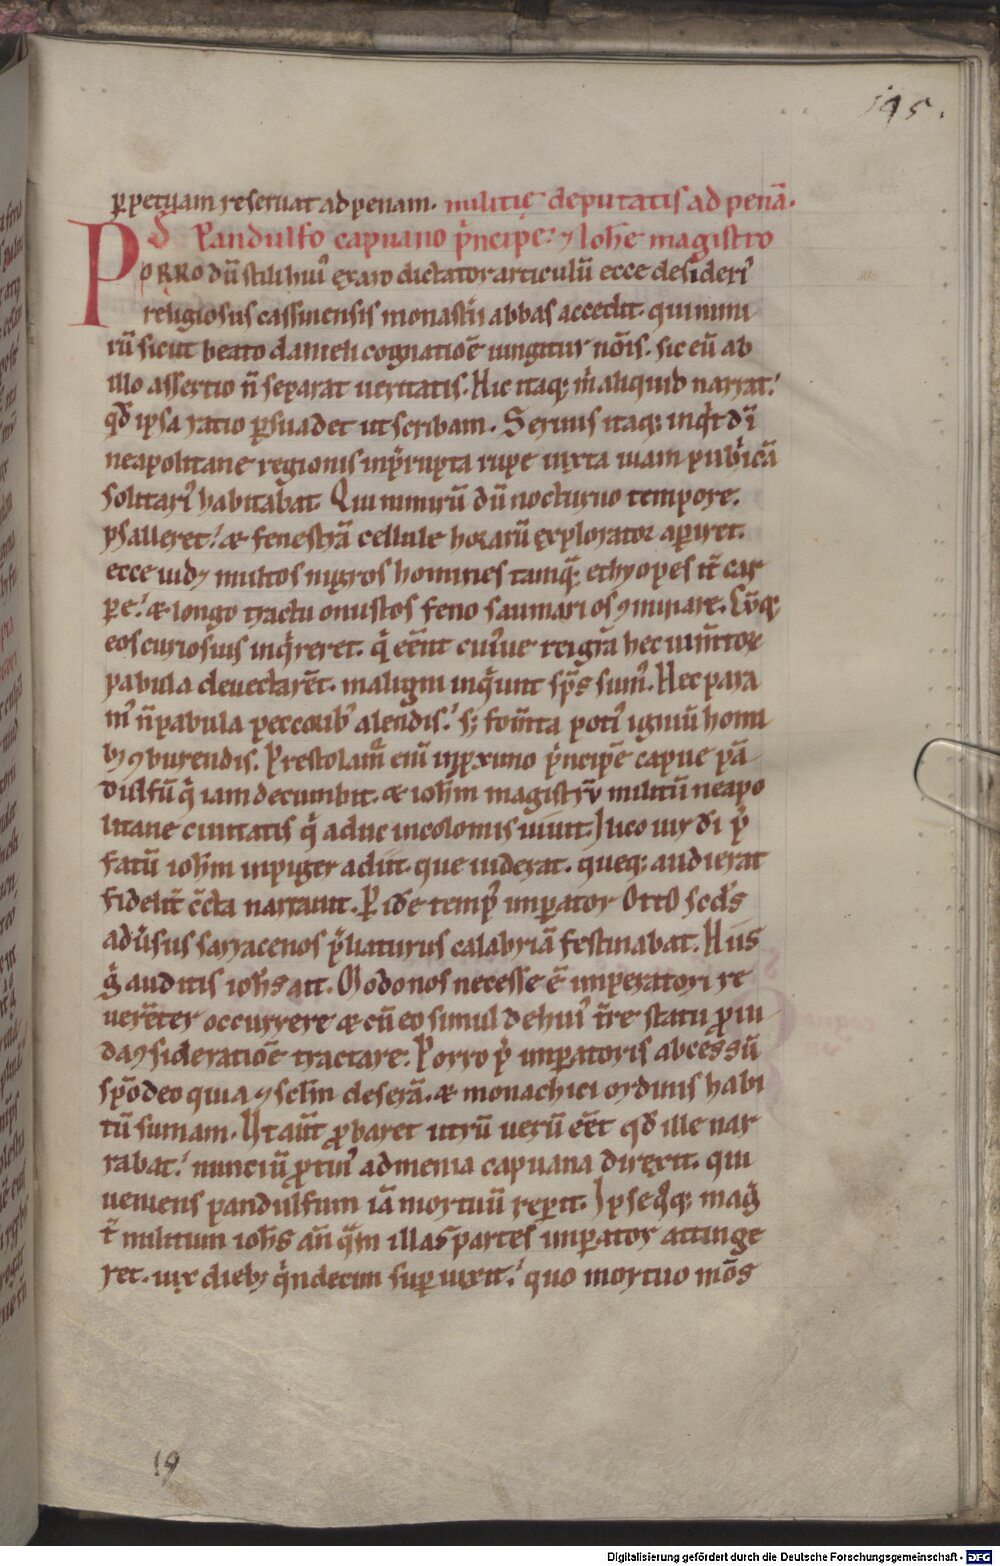 195.
ꝑpetuam reseruat ad penam. militię deputatis ad penā.
D̄ Pandulfo capuano p̓ncipe: ⁊ Ioh̄e magistro
PORRO dū stili huiꝰ exaro dictator articulū ecce desideriꝰ
religiosus cassinensis monast̓ii abbas accedit. qui nimi
rū sicut beato danieli cognatiōe iungitur nōis. sic eū ab
illo assertio n̄ separat ueritatis. Hic itaq; m̓ aliquid narrat.
qđ ipsa ratio ꝑsuadet ut scribam. Seruus itaq; inq̓t dī
neapolitane regionis in p̓rupta rupe iuxta uiam publ̓icā
solitariꝰ habitabat. Qui nimirū dū nocturno tempore.
psalleret. & fenestrā cellule horarū explorator aꝑiret.
ecce uid⁊ multos nigros homines tamq̄; ethyopes it̄ car
pe. & longo tractu onustos feno saumarios ꝯminare. Cūq;
eos curiosius inq̓reret. q̓ eēnt cuiꝰue rei grā hec ium̄torꝝ
pabula deuectarēt. maligni inq̓unt sp̄s sumꝰ. Hec para
mꝰ n̄ pabula peccoribꝰ alendis. s; fom̄ta potiꝰ igniū homi
b; ꝯburendis. Prestolam̓ eni̅ in ꝓximo p̓ncipē capue pā
dulfū q̓ iam decumbit. & ioh̄m magistrū militū neapo
litane ciuitatis q̓ adhuc incolomis uiuit. Ilico uir dī p̓
fatū ioh̄m inpiger adiit. que uiderat. queq; audierat
fidelit̄ cc̄ta narrauit. P id̄e tempꝰ imꝑator Otto sc̄ds
adūsus sarracenos p̓liaturus calabriā festinabat. Hiis
g̓ auditis ioh̄s ait. Modo nos necesse ē imperatori re
uerēter occurrere & cū eo simul de huiꝰ t̓re statu ꝓui
da ꝯsideratiōe tractare. Porro p̓ imꝑatoris abcessū
spōdeo quia ⁊ sc̄lm deserā. & monachici ordinis habi
tū sumam. Ut aūt ꝓbaret utrū uerū eēt qđ ille nar
rabat. nunciū ꝓtinꝰ ad menia capuana direxit. qui
ueniens pandulfum iā mortuū reꝑit. Ipse q̊q; mag̓
t̓ militum ioh̄s an̄ q̄m illas partes imꝑator attinge
ret. uix dieb; q̓ndecim suꝑuixit. quo mortuo mōs
19
Digitalisierung gefördert durch die Deutsche Forschungsgemeinschaft - DFG